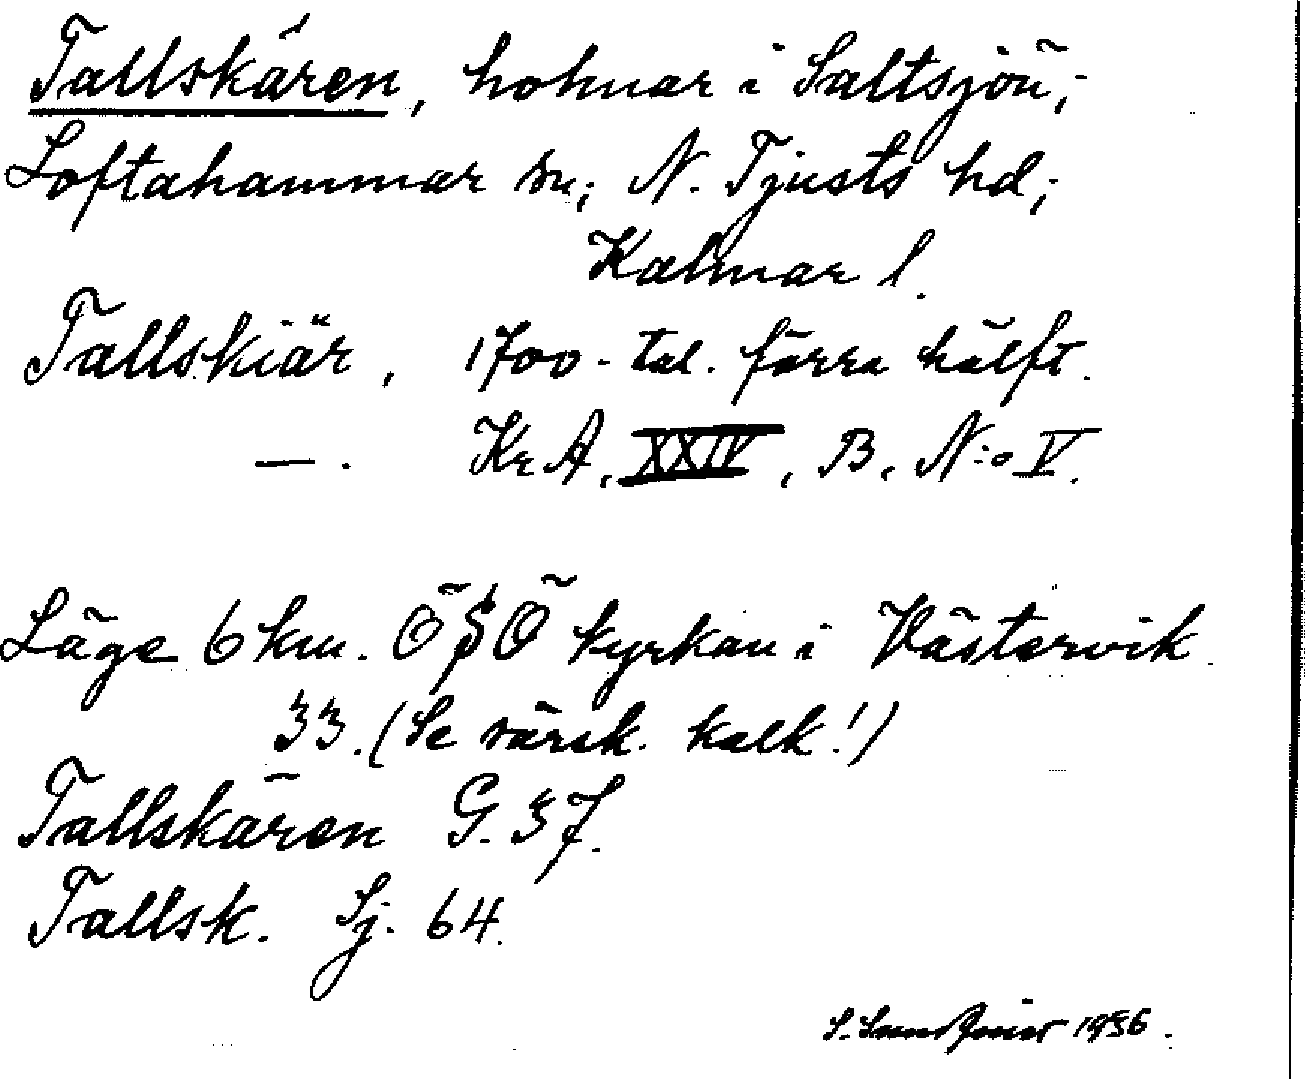 Tallskären, holmar i Saltsjön;
Loftahammar sn; N. Tjusts hd;
Kalmar l.
Tallskiär, 1700-tal. förra hälft.
—. KrA, XXIV, B, N:o V.
Läge 6 km. ÖSÖ kyrkan i Västervik
33. (Se särsk. kalk!)
Tallskären G. 37.
Tallsk. Sj. 64.
S. 1936.